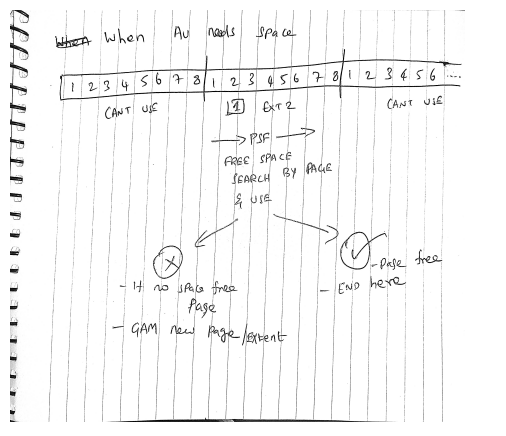 When When Au needs space
1 2 3 4 5 6 7 8 1 2 3 4 5 6 7 8 1 2 3 4 5 6 ....
CANT USE 1 EXT 2 CANT USE
PSF
FREE SPACE
SEARCH BY PAGE
& USE
- If no space free
Page
- GAM new page/Extent
- Page free
- END here